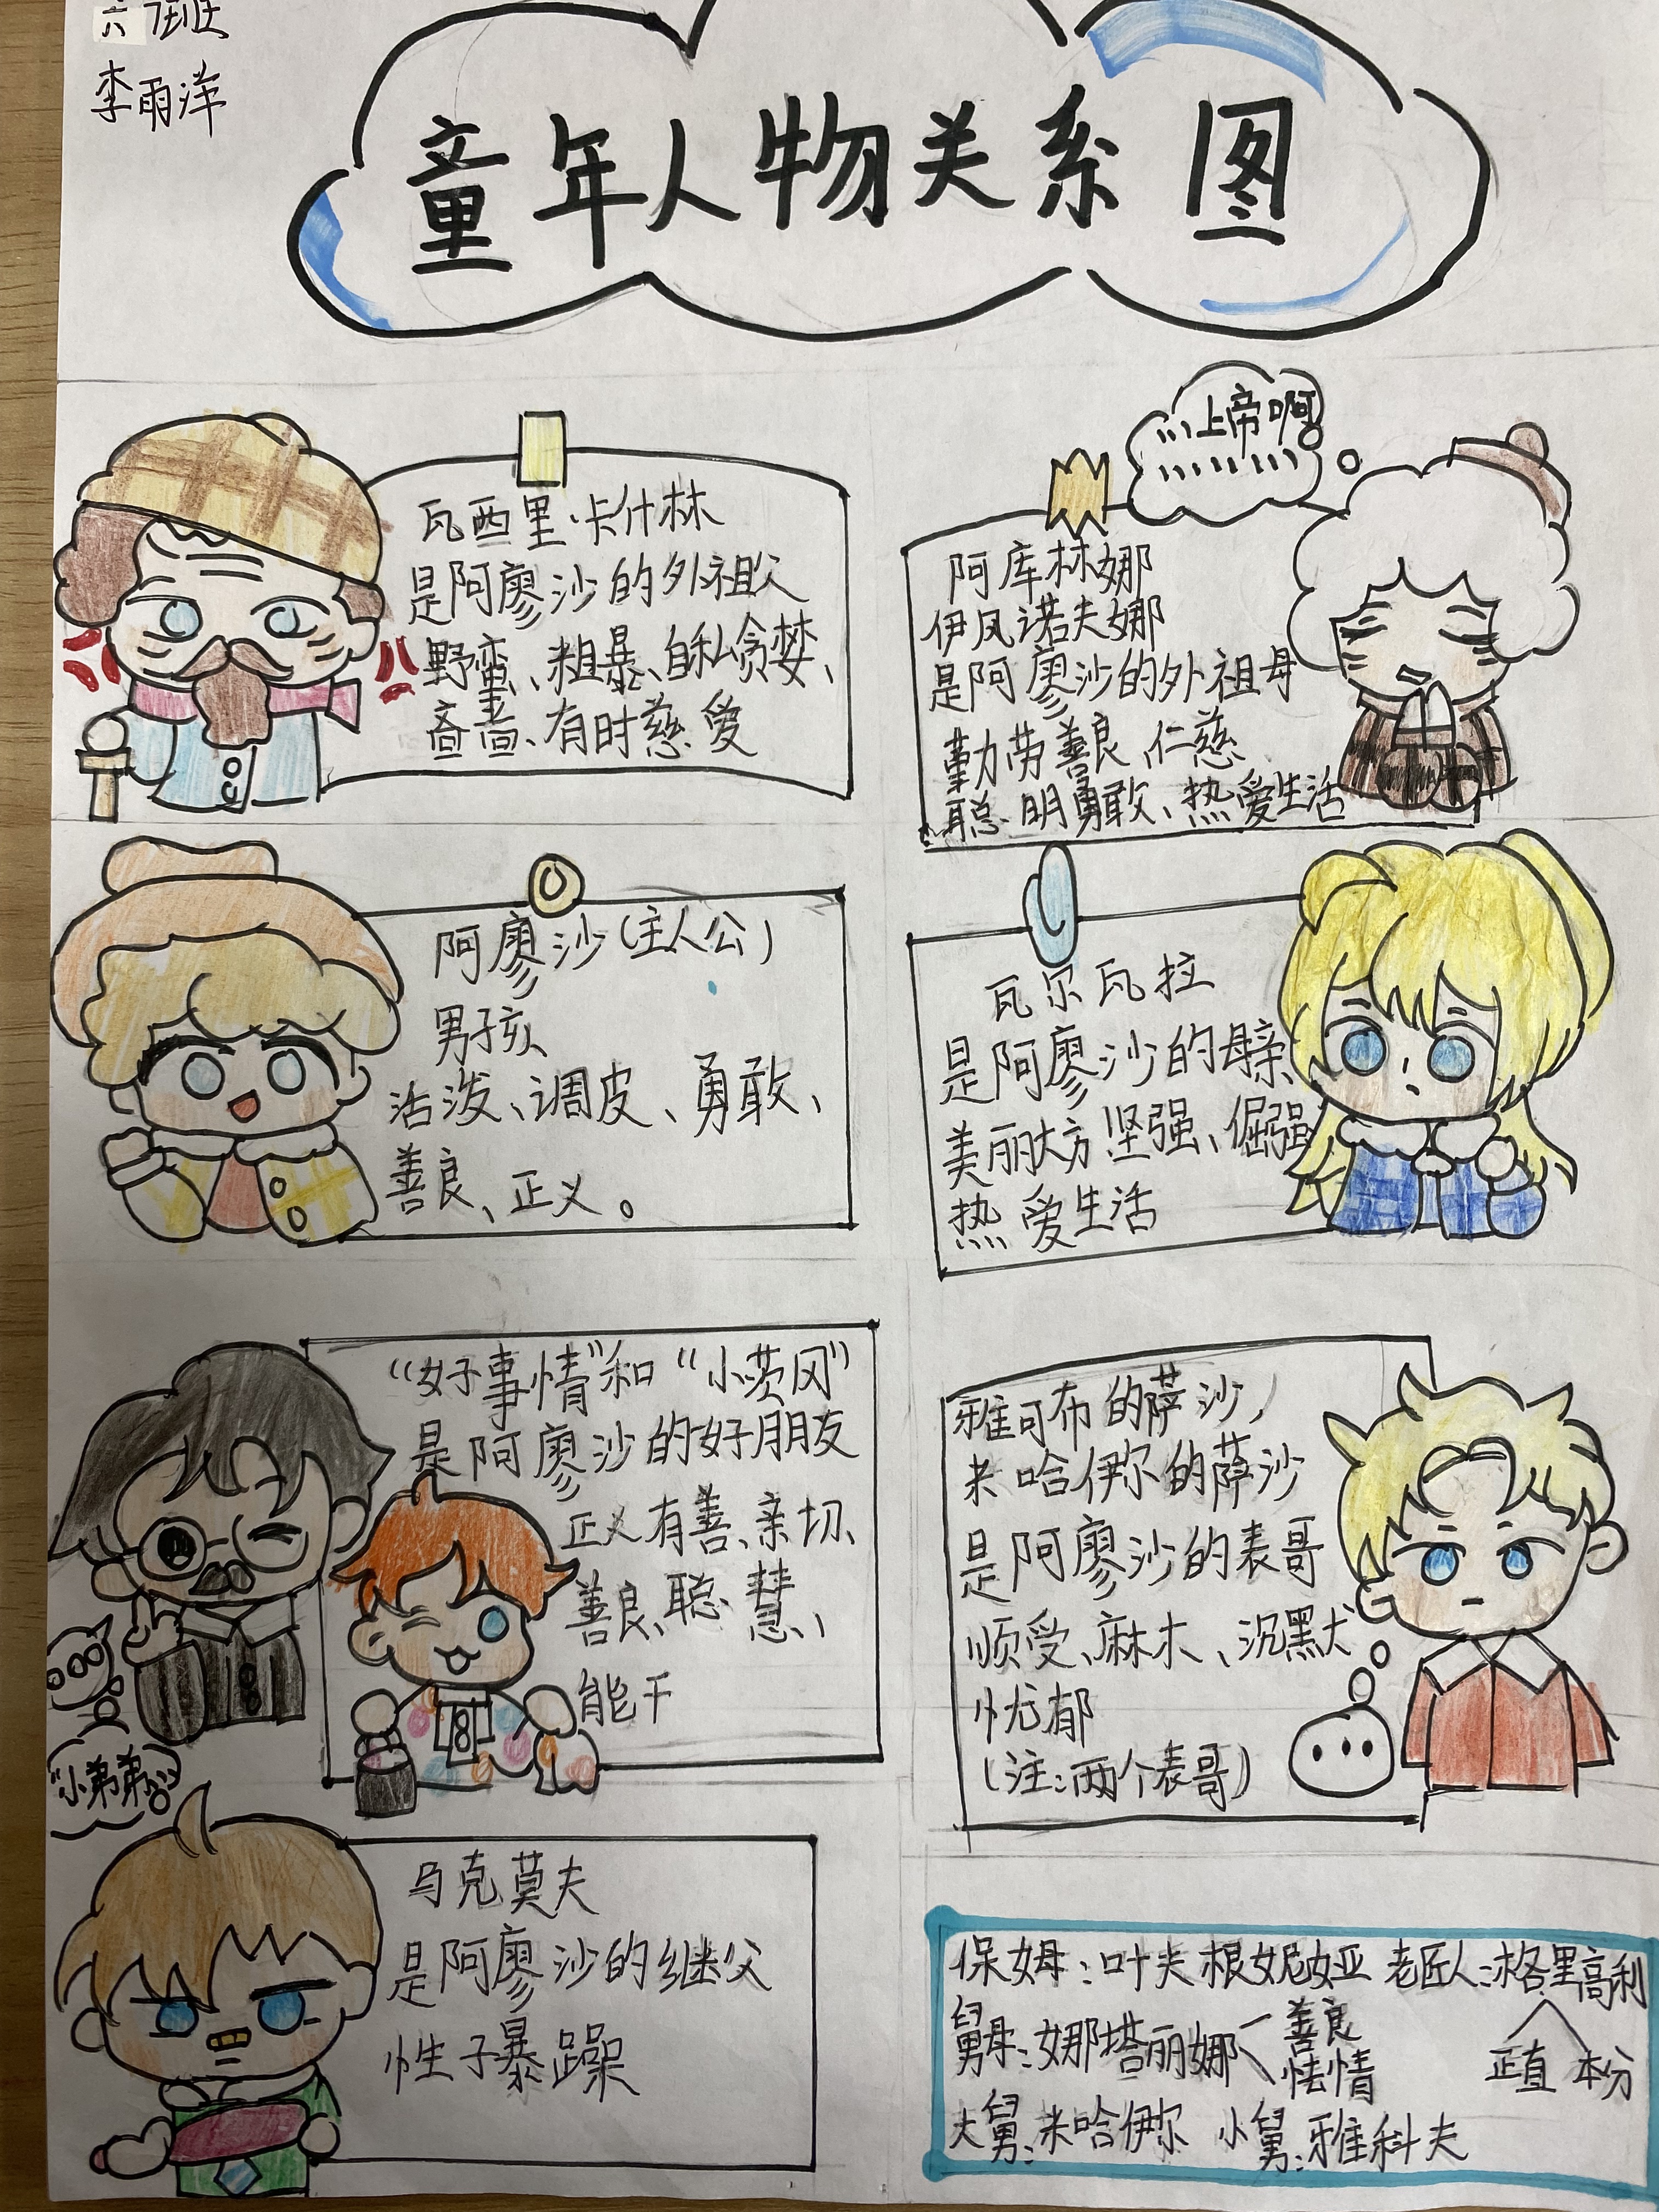 六7班
李雨洋
童年人物关系图
瓦西里·卡什林
是阿廖沙的外祖父
野蛮、粗暴、自私贪婪、
吝啬、有时慈爱
上帝啊
阿库林娜
伊凤诺夫娜
是阿廖沙的外祖母
勤劳善良、仁慈
聪明勇敢、热爱生活
阿廖沙(主人公)
男孩
活泼、调皮、勇敢、
善良、正义。
瓦尔瓦拉
是阿廖沙的母亲
美丽大方 坚强、倔强
热爱生活
“好事情”和“小茨冈”
是阿廖沙的好朋友
正义有善、亲切、
善良、聪慧、
能干
雅可布的萨沙,
米哈伊尔的萨沙
是阿廖沙的表哥
顺受、麻木、沉默
忧郁
(注:两个表哥)
“小弟弟”
乌克莫夫
是阿廖沙的继父
性子暴躁
保姆:叶夫根妮娅 老匠人:格里高利
舅母:娜塔丽娜
善良
怯情
正直 本分
大舅:米哈伊尔 小舅:雅科夫